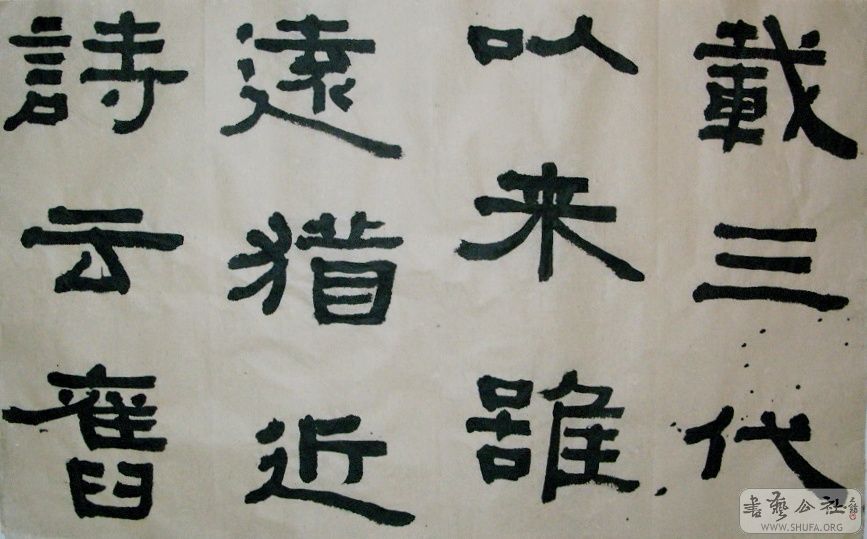 載三代
以来雖
遠猶近
詩云舊
書藝公社
WWW.SHUFA.ORG